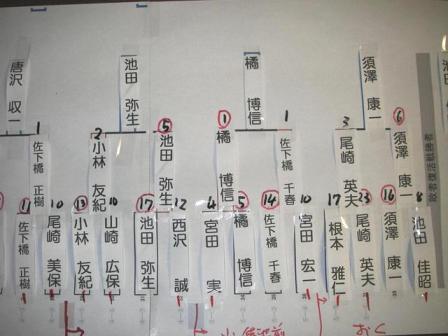 唐沢 収一
池田 弥生
橘 博信
須澤 康一
敗者復活戦勝者
1
佐下橋 正樹
2
小林 友紀
⑤
池田 弥生
①
橘 博信
1
佐下橋 千春
3
尾崎 英夫
⑥
須澤 康一
⑪
佐下橋 正樹
10
尾崎 美保
⑬
小林 友紀
10
山崎 広保
⑰
池田 弥生
12
西沢 誠
4
宮田 実
⑤
橘 博信
⑭
佐下橋 千春
10
宮田 宏一
17
根本 雅仁
㉓
尾崎 英夫
⑯
須澤 康一
8
池田 佳昭
おく